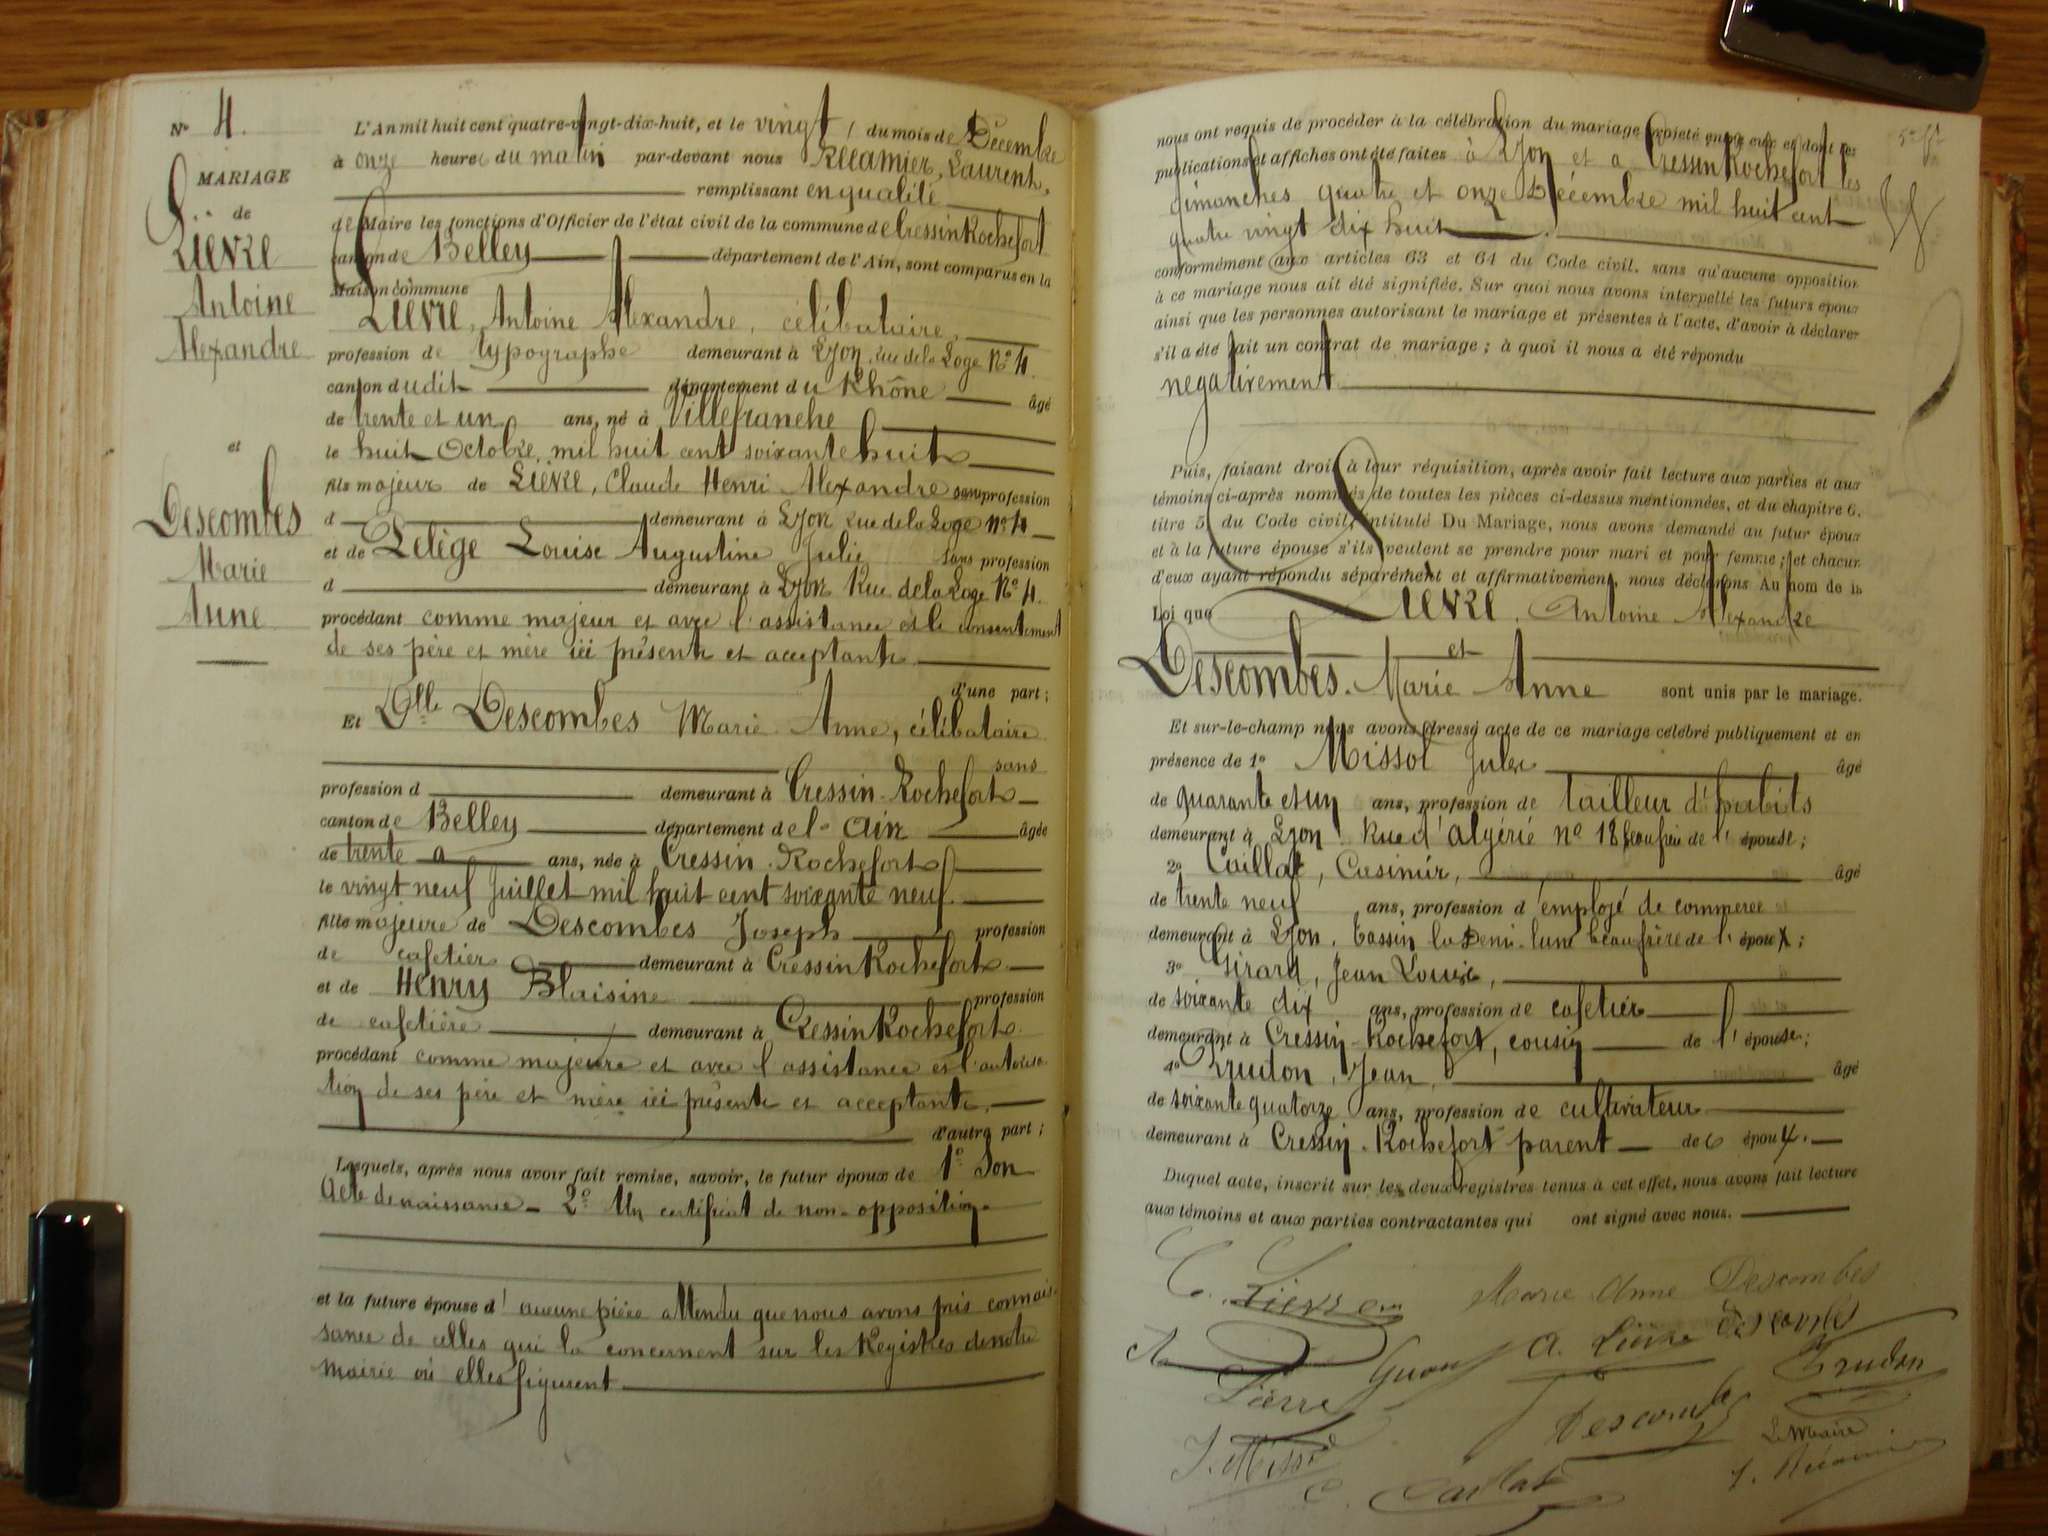 N° 4.
MARIAGE
de
Lièvre
Antoine
Alexandre
et
Descombes
Marie
Anne
L'An mil huit cent quatre-vingt-dix-huit, et le vingt, du mois de Décembre
à onze heures du matin par-devant nous Récamier, Laurent,
remplissant en qualité
de Maire les fonctions d'Officier de l'état civil de la commune de Cressin Rochefort
canton de Belley département de l'Ain, sont comparus en la
Maison commune
Lièvre, Antoine Alexandre, célibataire,
profession de typographe demeurant à Lyon, rue de la Loge N° 4.
canton dudit département du Rhône âgé
de trente et un ans, né à Villefranche
le huit Octobre mil huit cent soixante huit
fils majeur de Lièvre, Claude Henri Alexandre sans profession
d demeurant à Lyon rue de la Loge N° 4
et de Lelège Louise Augustine Julie sans profession
d demeurant à Lyon Rue de la Loge N° 4.
procédant comme majeur et avec l'assistance et le consentement
de ses père et mère ici présents et acceptants
d'une part;
Et Dlle Descombes Marie Anne, célibataire
sans
profession d demeurant à Cressin-Rochefort
canton de Belley département de l'Ain âgée
de trente ans, née à Cressin-Rochefort
le vingt neuf Juillet mil huit cent soixante neuf.
fille majeure de Descombes Joseph profession
de cafetier demeurant à Cressin Rochefort
et de Henry Blaisine profession
de cafetière demeurant à Cressin Rochefort
procédant comme majeure et avec l'assistance et l'autorisa
tion de ses père et mère ici présents et acceptants.
d'autre part;
Lesquels, après nous avoir fait remise, savoir, le futur époux de 1° Son
Acte de naissance – 2° Un certificat de non-opposition.
et la future épouse d'aucune pièce attendu que nous avons pris connais-
sance de celles qui la concernent sur les Registres de notre
mairie où elles figurent
nous ont requis de procéder à la célébration du mariage projeté entre eux et dont les
publications et affiches ont été faites à Lyon et à Cressin Rochefort les
dimanches quatre et onze Décembre mil huit cent
quatre vingt dix huit.
conformément aux articles 63 et 64 du Code civil. sans qu'aucune opposition
à ce mariage nous ait été signifiée. Sur quoi nous avons interpellé les futurs époux
ainsi que les personnes autorisant le mariage et présentes à l'acte, d'avoir à déclarer
s'il a été fait un contrat de mariage; à quoi il nous a été répondu
négativement
Puis, faisant droit à leur réquisition, après avoir fait lecture aux parties et aux
témoins ci-après nommés de toutes les pièces ci-dessus mentionnées, et du chapitre 6.
titre 5. du Code civil, intitulé Du Mariage, nous avons demandé au futur époux
et à la future épouse s'ils veulent se prendre pour mari et pour femme; et chacun
d'eux ayant répondu séparément et affirmativement, nous déclarons Au nom de la
Loi que Lièvre, Antoine Alexandre
et
Descombes. Marie Anne sont unis par le mariage.
Et sur-le-champ nous avons dressé acte de ce mariage célébré publiquement et en
présence de 1° Missol Jules âgé
de quarante et un ans, profession de tailleur d'habits
demeurant à Lyon Rue d'Algérie n° 18 beau frère de l'épouse;
2° Caillat, Casimir, âgé
de trente neuf ans, profession d'employé de commerce
demeurant à Lyon. Tassin la Demi-lune beau frère de l'époux;
3° Girard, Jean Louis,
de soixante dix ans, profession de cafetier
demeurant à Cressin-Rochefort, cousin de l'épouse;
4° Trudon, Jean, âgé
de soixante quatorze ans, profession de cultivateur
demeurant à Cressin-Rochefort parent de époux.
Duquel acte, inscrit sur les deux registres tenus à cet effet, nous avons fait lecture
aux témoins et aux parties contractantes qui ont signé avec nous.
C. Lièvre Marie Anne Descombes
A. Lièvre Descombes
Trudon
Lièvre
Descombes
Le Maire
J. Missol
C. Caillat
L. Récamier